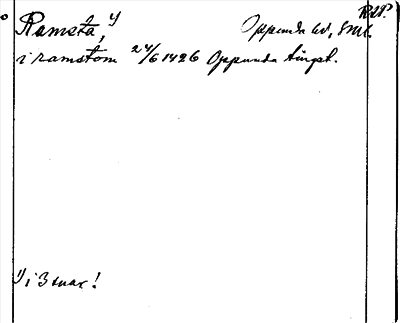 Ramsta, 1) Oppunda hd, Sml.
i ramstom 24/6 1426 Oppunda tingst.
1) i 3